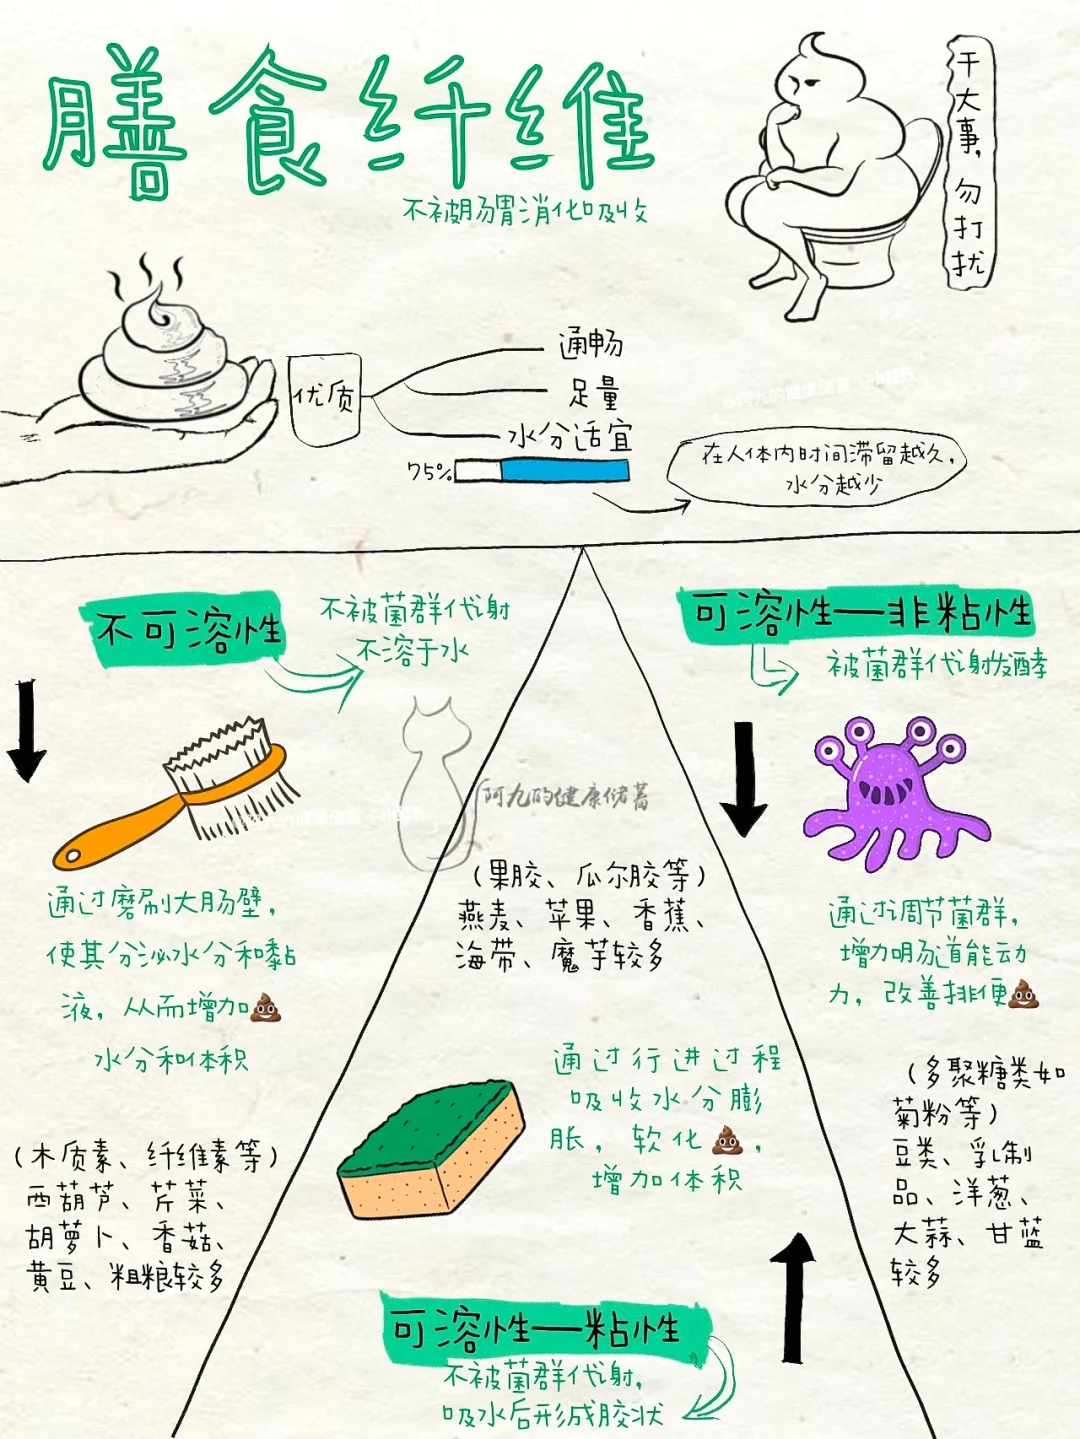 膳食纤维
不被肠胃消化吸收
干大事，勿打扰
优质
通畅
足量
水分适宜
75%
在人体内时间滞留越久，
水分越少
不可溶性
不被菌群代谢
不溶于水
通过磨刷大肠壁，
使其分泌水分和黏
液，从而增加💩
水分和体积
（木质素、纤维素等）
西葫芦、芹菜、
胡萝卜、香菇、
黄豆、粗粮较多
阿九的健康储蓄
（果胶、瓜尔胶等）
燕麦、苹果、香蕉、
海带、魔芋较多
通过行进过程
吸收水分膨
胀，软化💩，
增加体积
可溶性—粘性
不被菌群代谢，
吸水后形成胶状
可溶性—非粘性
被菌群代谢发酵
通过调节菌群，
增加肠道能动
力，改善排便💩
（多聚糖类如
菊粉等）
豆类、乳制
品、洋葱、
大蒜、甘蓝
较多